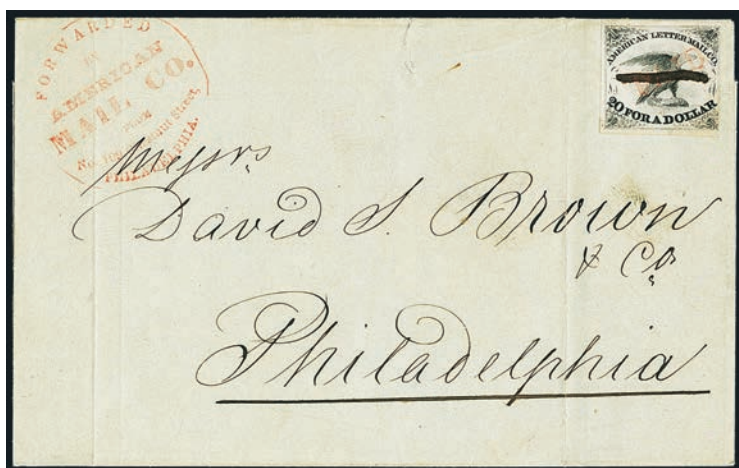 FORWARDED
BY
AMERICAN
MAIL CO.
FROM
No. 109 Street,
PHILADELPHIA.
AMERICAN LETTER MAIL CO.
20 FOR A DOLLAR
Messrs
David S. Brown
& Co.
Philadelphia